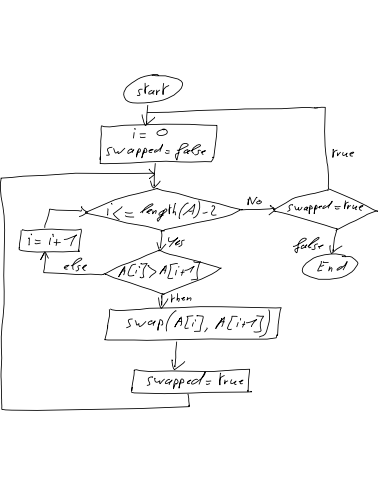 start
i = 0
swapped = false
true
i <= length(A) - 2
No
swapped = true
Yes
false
i = i + 1
else
A[i] > A[i+1]
End
then
swap(A[i], A[i+1])
swapped = true